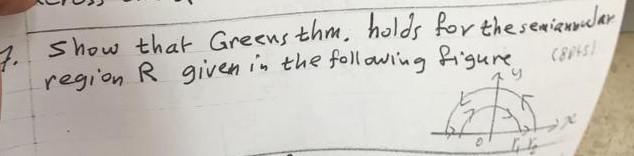 7. Show that Greens thm. holds for the semiannular
region R given in the following figure (8pts)
y
x
0 r₁ r₂